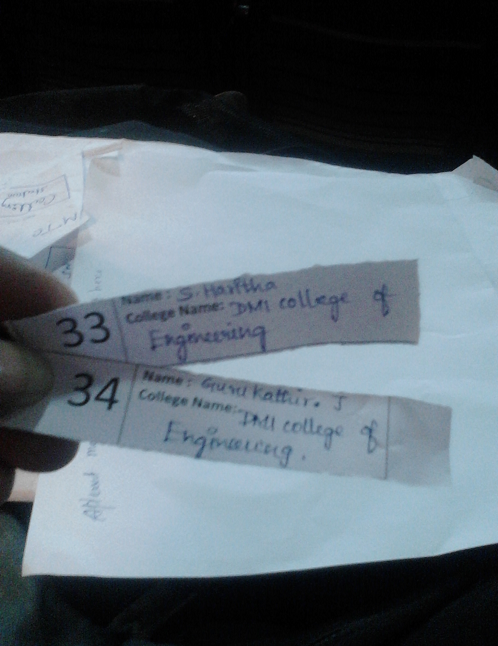 33
Name: S. Haritha
College Name: DMI college of
Engineering
34
Name: Gurukathir. J
College Name: DMI college of
Engineering.